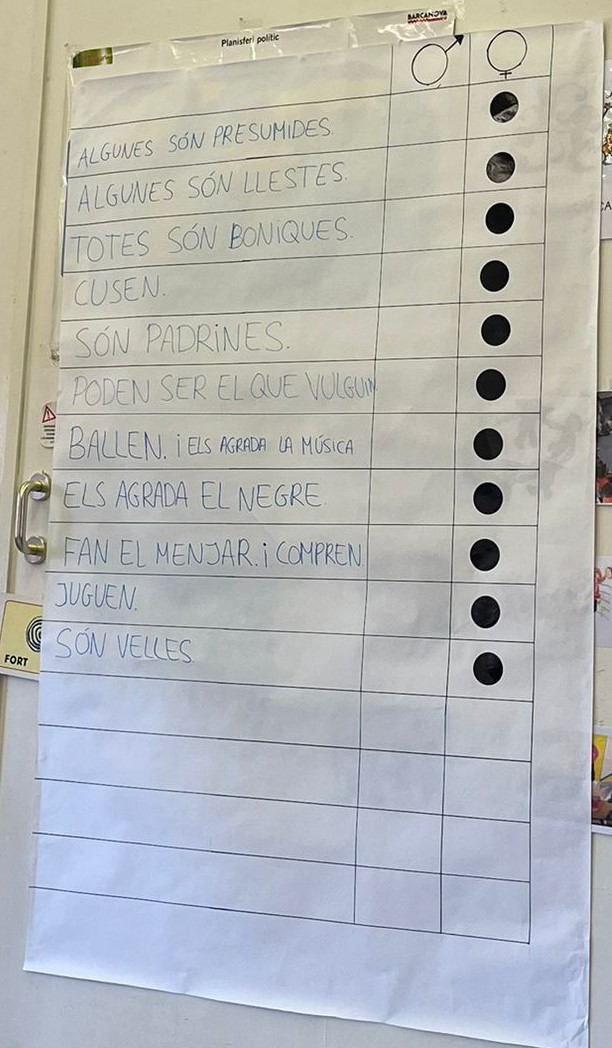 BARCANOVA
Planisferi polític
♂ ♀
ALGUNES SÓN PRESUMIDES.
ALGUNES SÓN LLESTES.
TOTES SÓN BONIQUES.
CUSEN.
SÓN PADRINES.
PODEN SER EL QUE VULGUIN
BALLEN. i ELS AGRADA LA MÚSICA
ELS AGRADA EL NEGRE.
FAN EL MENJAR. i COMPREN
JUGUEN.
FORT
SÓN VELLES.